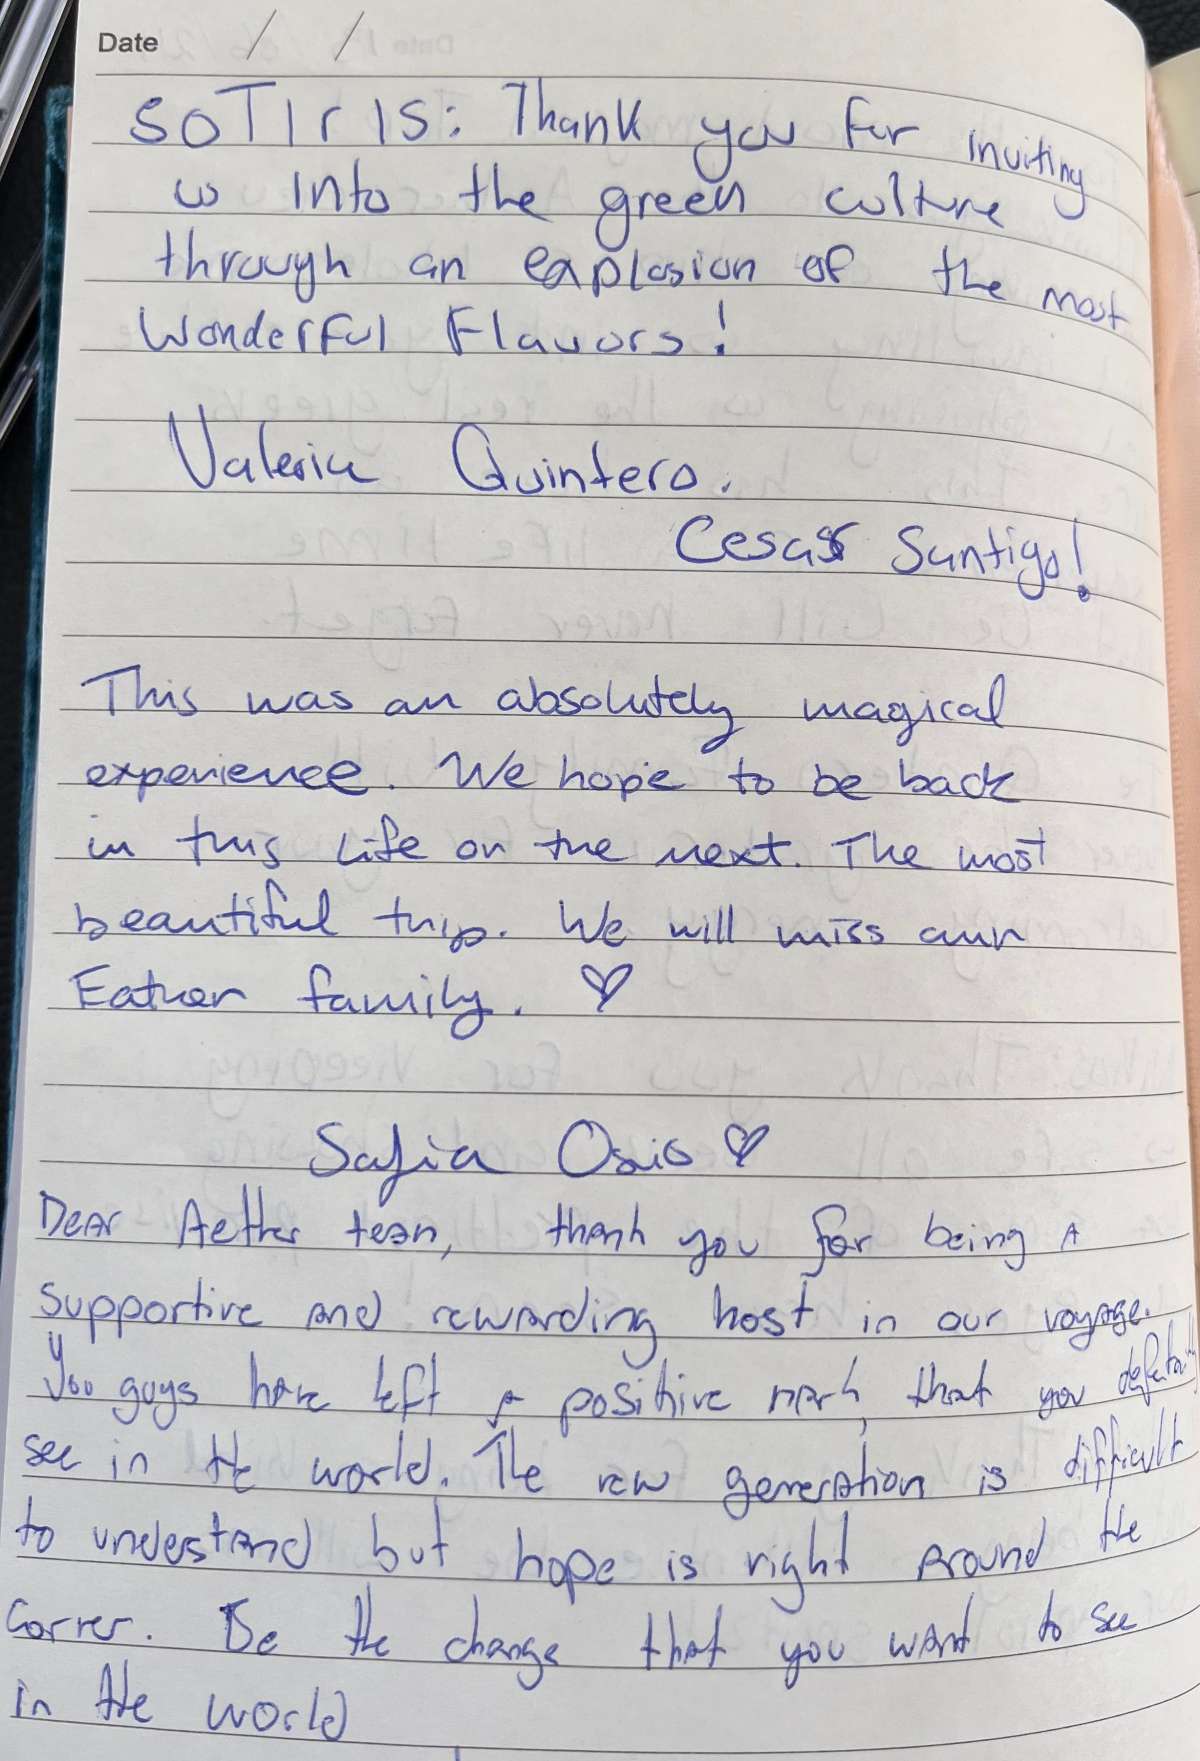 Date / /
SOTIrIS: Thank you for inviting
us into the green culture
through an explosion of the most
Wonderful Flavors!
Valeria Quintero.
Cesar Santigo!
This was an absolutely magical
experience. We hope to be back
in this life or the next. The most
beautiful trip. We will miss our
Eather family. ♡
Safia Osio ♡
Dear Aether team, thank you for being A
supportive and rewarding host in our voyage.
You guys have left a positive mark, that you
see in the world. The new generation is difficult
to understand but hope is right around the
corner. Be the change that you want to see
in the world